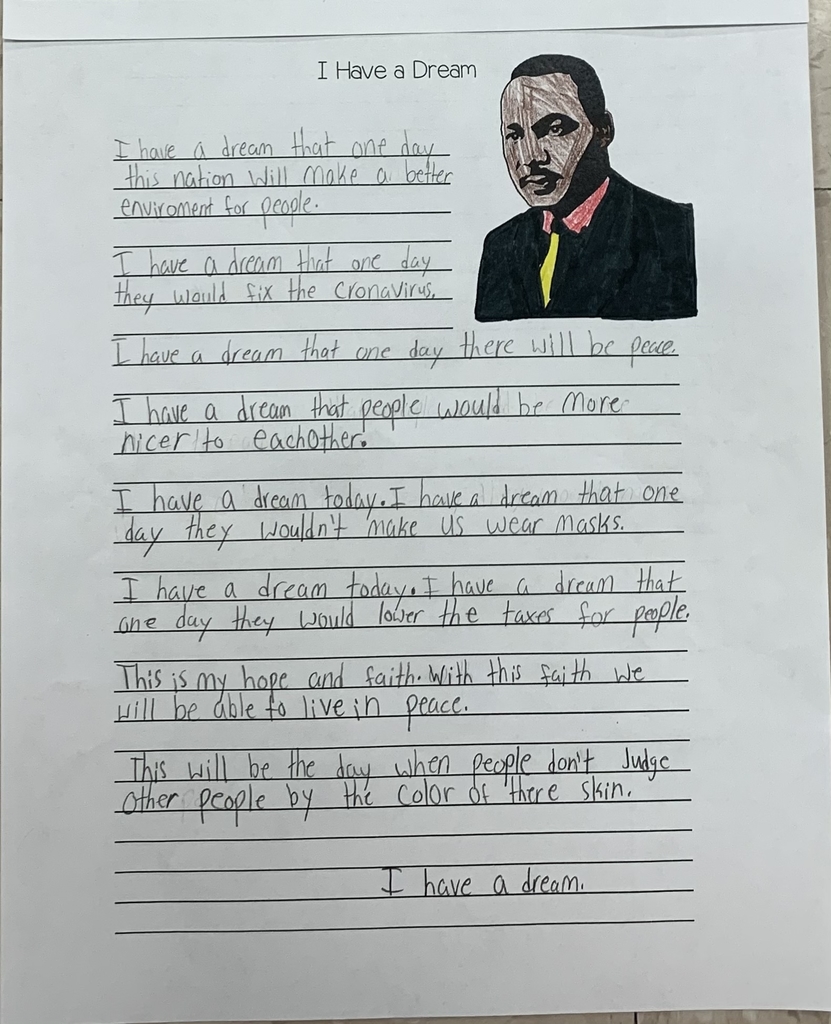 I Have a Dream
I have a dream that one day
this nation will make a better
enviroment for people.
I have a dream that one day
they would fix the cronavirus.
I have a dream that one day there will be peace.
I have a dream that people would be more
nicer to eachother.
I have a dream today. I have a dream that one
day they wouldn't make us wear masks.
I have a dream today. I have a dream that
one day they would lower the taxes for people.
This is my hope and faith. With this faith we
will be able to live in peace.
This will be the day when people don't Judge
other people by the color of there skin.
I have a dream.